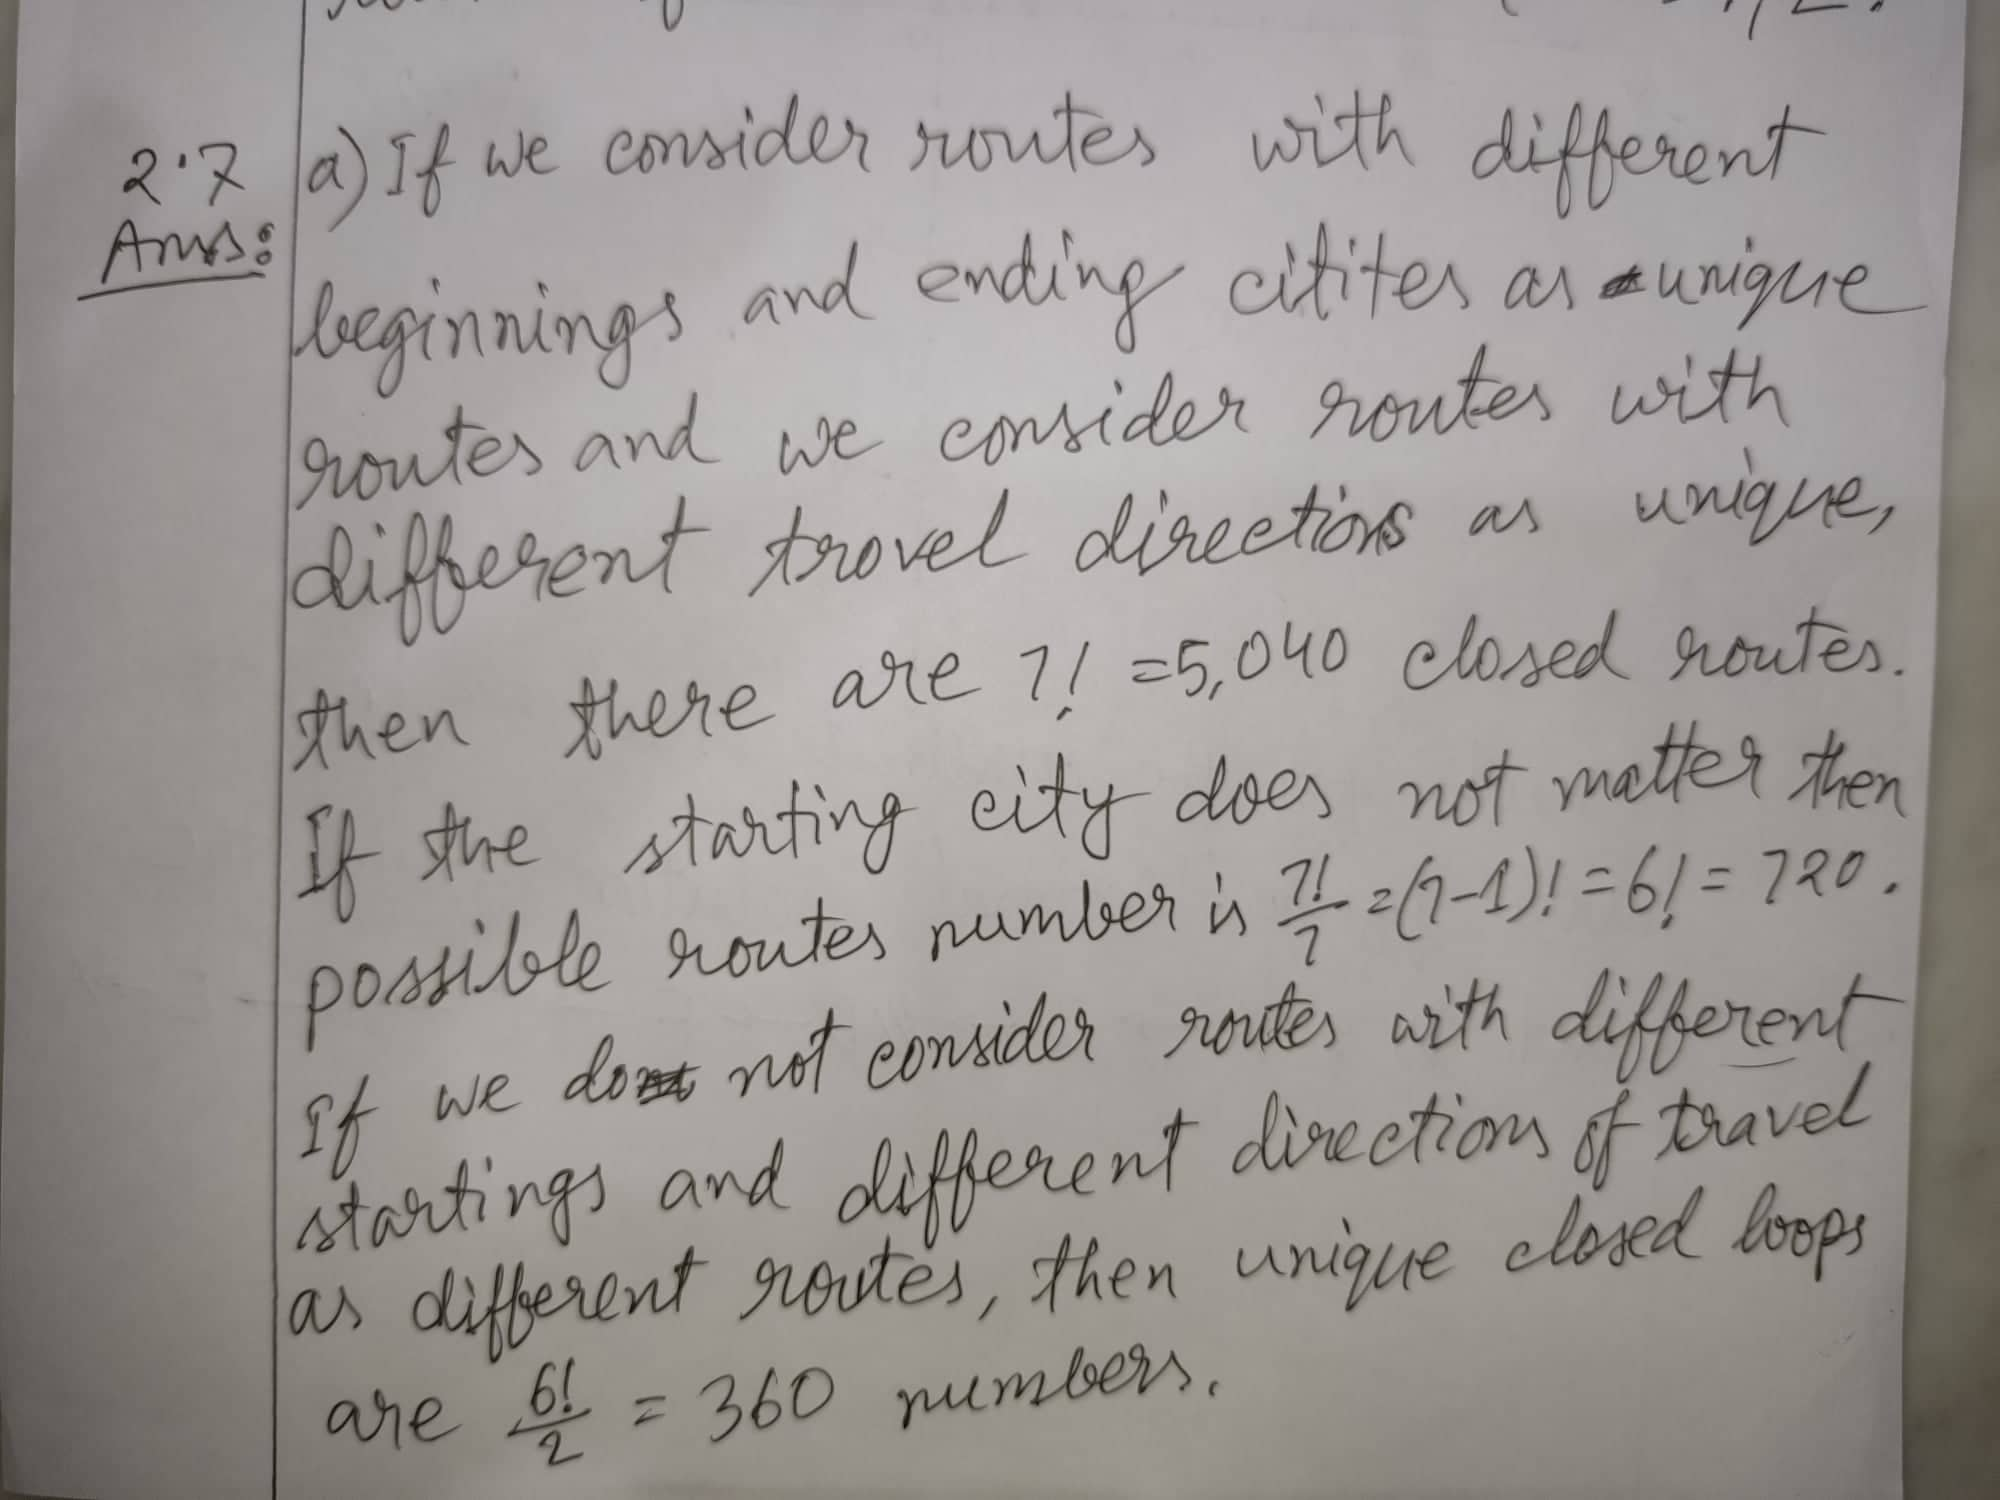 2.7 a) If we consider routes with different
Ans:
beginnings and ending citites as unique
routes and we consider routes with
different travel directions as unique,
then there are 7! =5,040 closed routes.
If the starting city does not matter then
possible routes number is 7!/7 =(7-1)! =6! = 720.
If we do not consider routes with different
startings and different directions of travel
as different routes, then unique closed loops
are 6!/2 = 360 numbers.